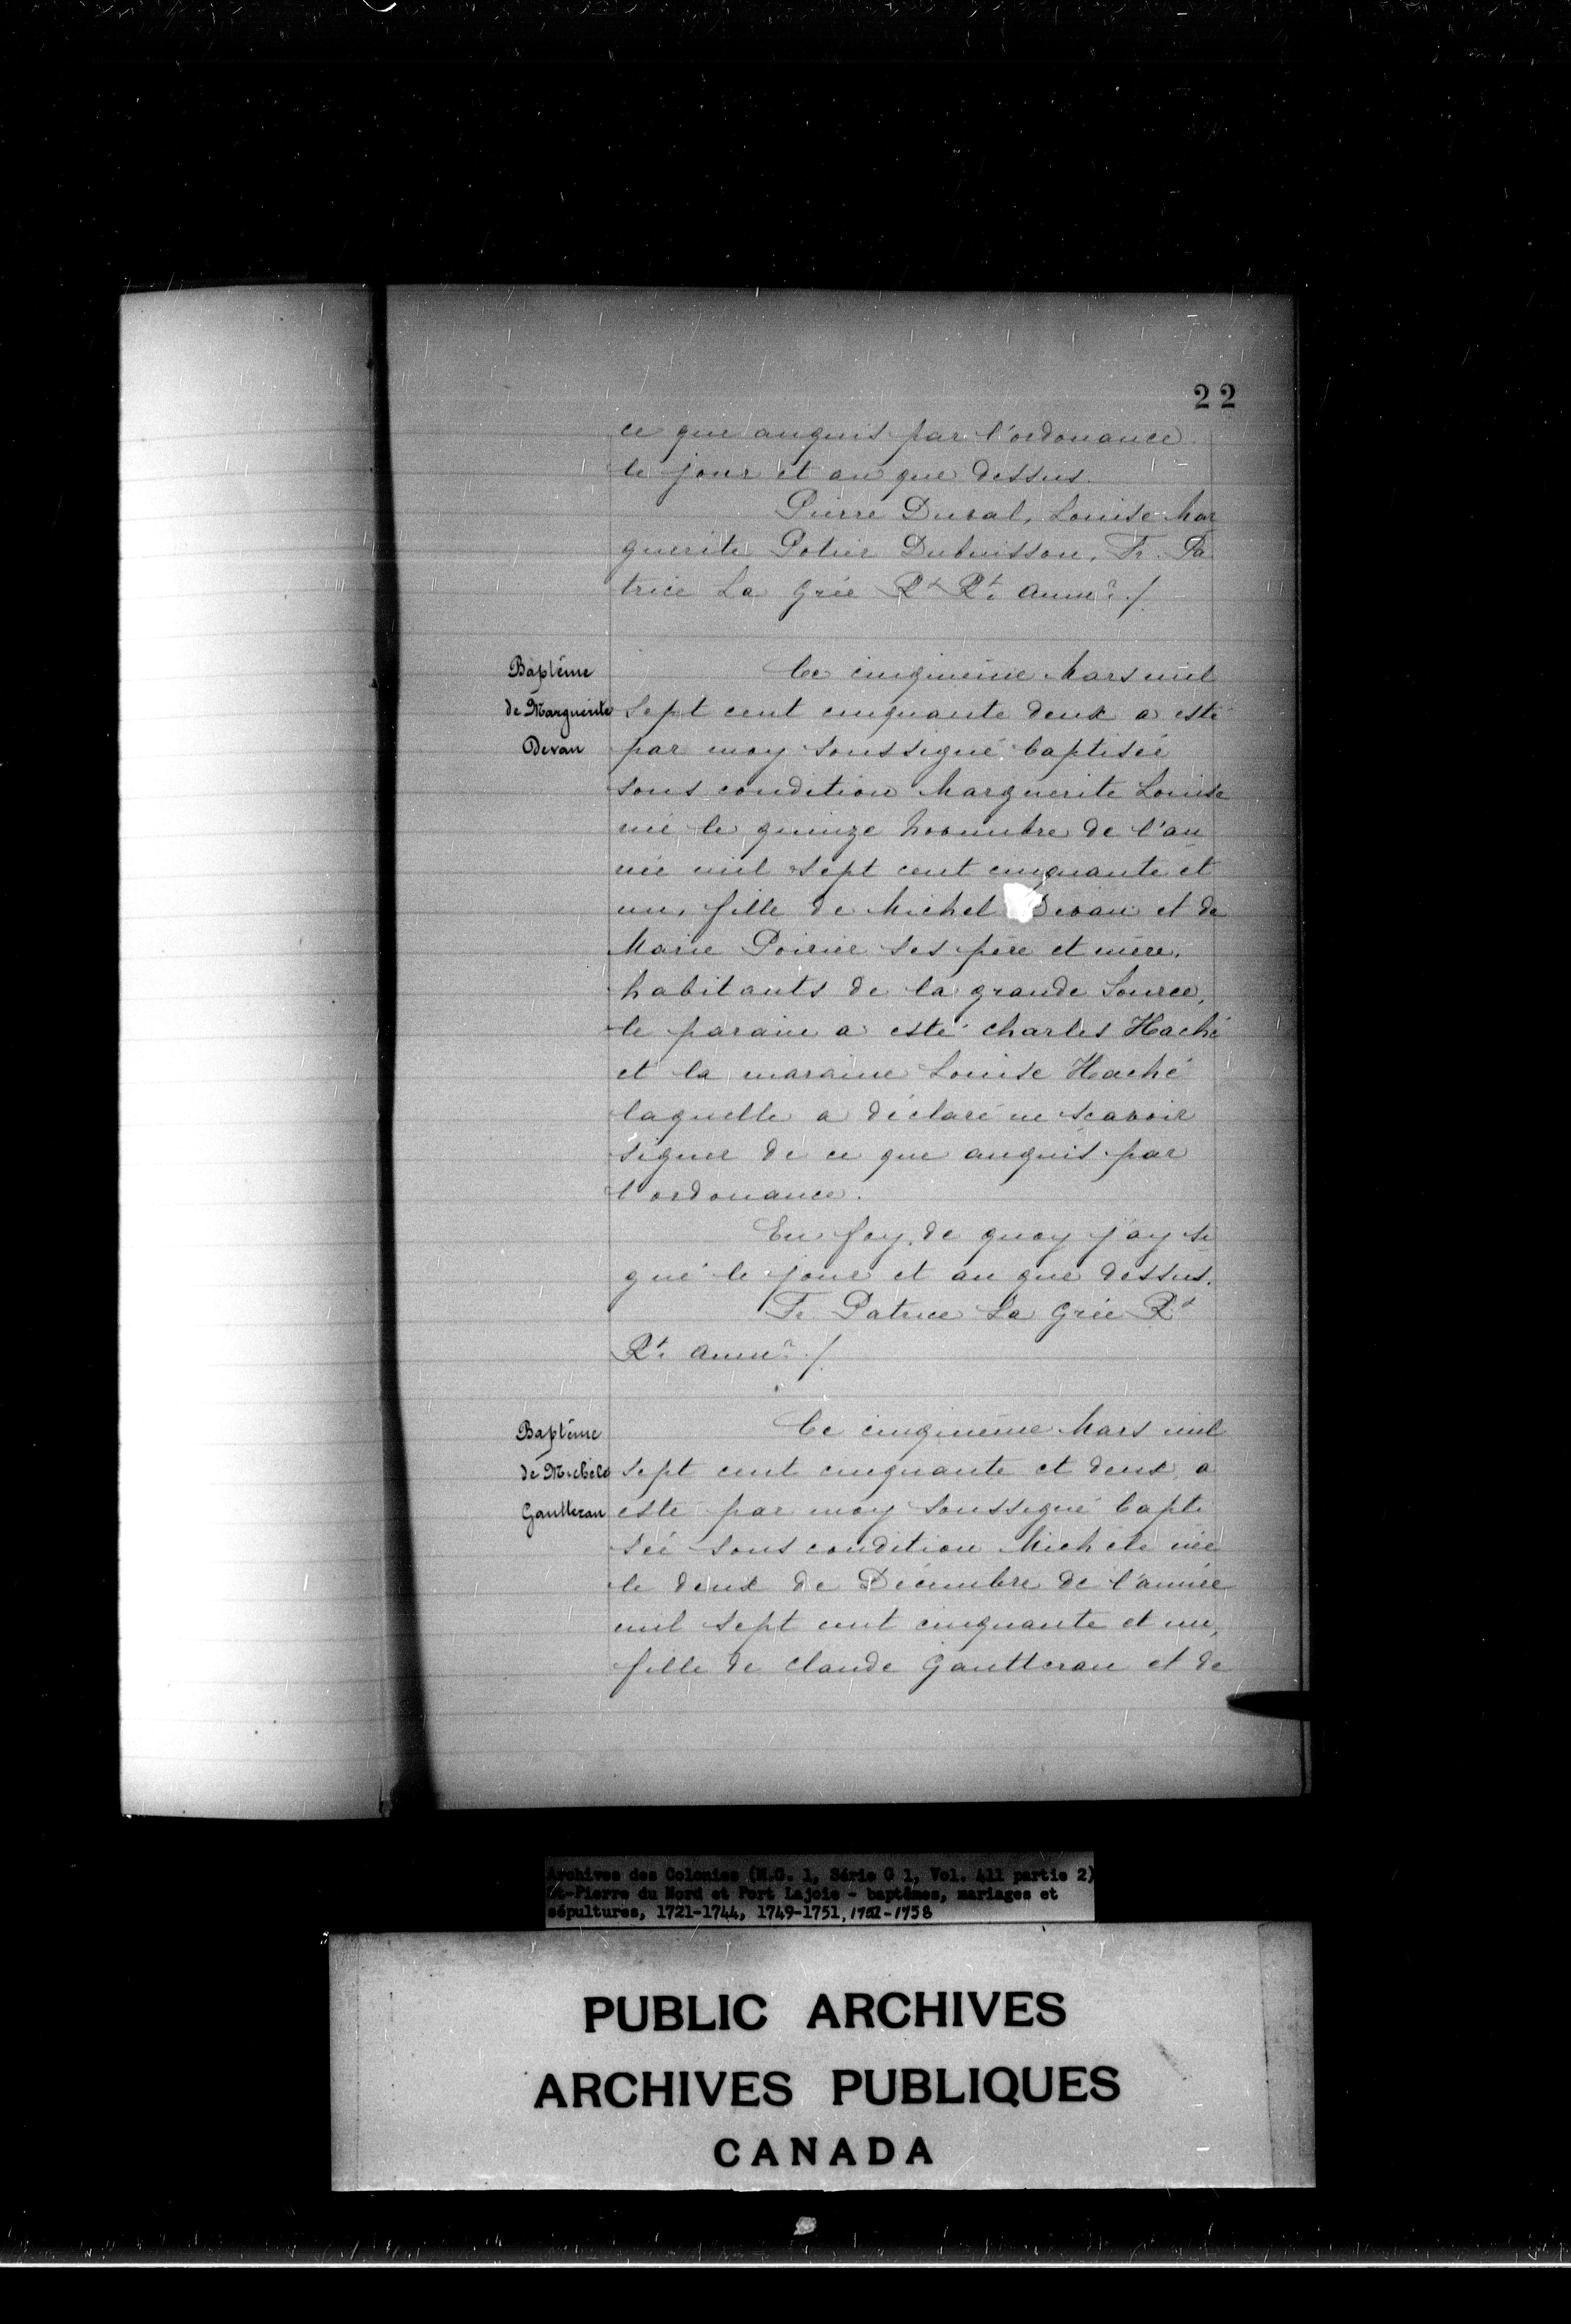 22
ce que anquis par l'ordonance
le jour et an que dessus.
Pierre Duval, Louise Mar
guerite Potier Dubuisson, Fr. Pa
trice La Grée Rt Rt. aumr ./.
Baptême
de Marguerite
Devau
Ce cinqineme Mars mil
sept cent cinquante deux a esté
par moy soussigné baptisée
sous condition Marguerite Louise
née le quinze novembre de l'an
née mil sept cent cinquante et
un, fille de Michel Devau et de
Marie Poirier ses père et mère,
habitants de la grande Source,
le parain a esté charles Haché
et la maraine Louise Haché
laquelle a déclaré ne scavoir
signer de ce que anquis par
l'ordonance.
En foy de quoy j'ay si
gné le jour et an que dessus.
Fr. Patrice La Grée Rt
Rt. aumr ./.
Baptême
de Michele
Gautteran
Ce cinqineme Mars mil
sept cent cinquante et deux, a
esté par moy soussigné bapti
sée sous condition Michele née
le deux de Décembre de l'année
mil sept cent cinquante et un,
fille de Claude Gautteran et de
Archives des Colonies (M.G. 1, Série G 1, Vol. 411 partie 2)
St-Pierre du Nord et Port Lajoie - baptêmes, mariages et
sépultures, 1721-1744, 1749-1751, 1752-1758
PUBLIC ARCHIVES
ARCHIVES PUBLIQUES
CANADA